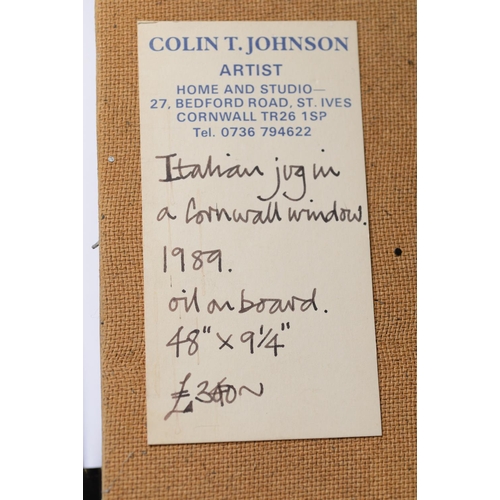 COLIN T. JOHNSON
ARTIST
HOME AND STUDIO—
27, BEDFORD ROAD, ST. IVES
CORNWALL TR26 1SP
Tel. 0736 794622
Italian jug in
a Cornwall window.
1989.
oil on board.
48" x 9¼"